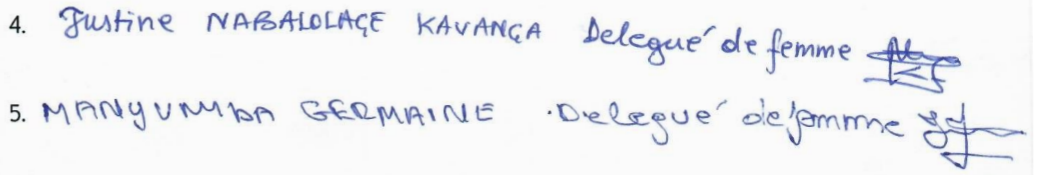 4. Justine NABALOLAGE KAVANGA Delegué de femme
5. MANYUNMBA GERMAINE . Delegué de femme